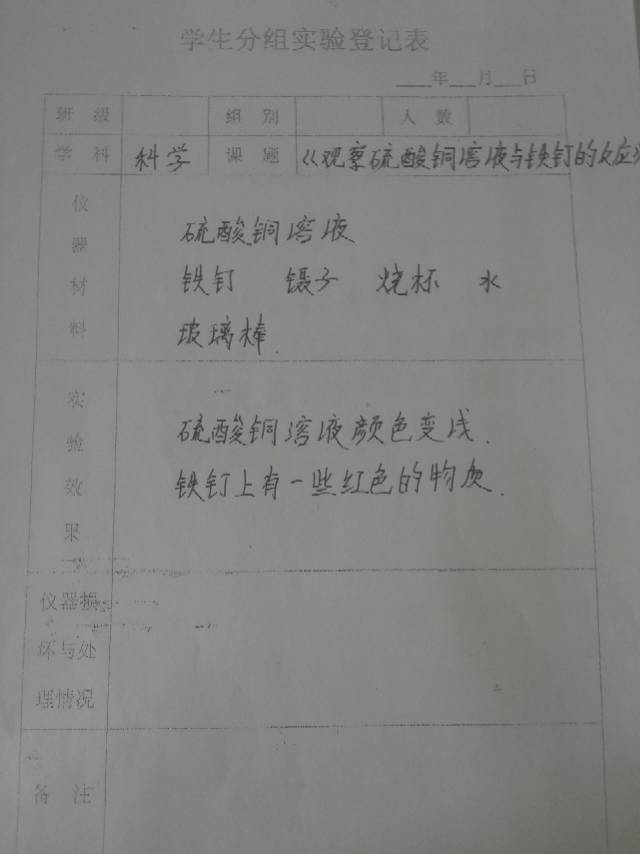 学生分组实验登记表
___年___月___日
班级 组别 人数
学科 科学 课题 《观察硫酸铜溶液与铁钉的反应》
仪器材料
硫酸铜溶液
铁钉 镊子 烧杯 水
玻璃棒
实验效果
硫酸铜溶液颜色变浅.
铁钉上有一些红色的物质.
仪器损
坏与处
理情况
备注